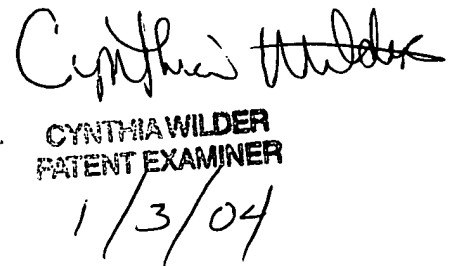 Cynthia Wilder
CYNTHIA WILDER
PATENT EXAMINER
1/3/04